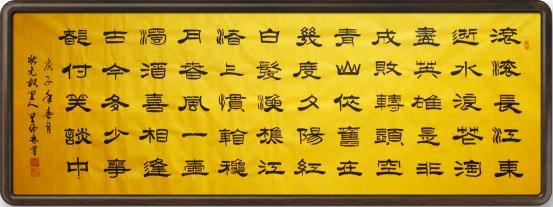 滾滾長江東
逝水浪花淘
盡英雄是非
成敗轉頭空
青山依舊在
幾度夕陽紅
白髮漁樵江
渚上慣看穐
月春風一壺
濁酒喜相逢
古今多少事
都付笑談中
庚子年春月
狀元故里人